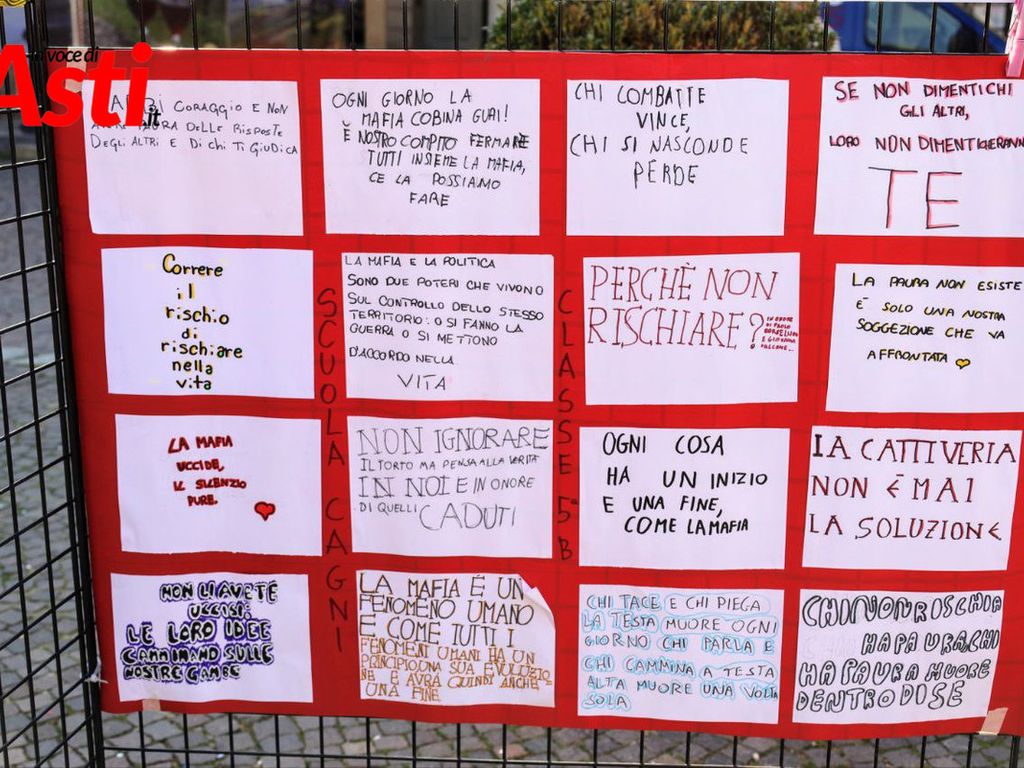 la voce di
Asti
.it
CORAGGIO E NON
DELLE RISPOSTE
DEGLI ALTRI E DI CHI TI GIUDICA
OGNI GIORNO LA
MAFIA COBINA GUAI!
È NOSTRO COMPITO FERMARE
TUTTI INSIEME LA MAFIA,
CE LA POSSIAMO
FARE
CHI COMBATTE
VINCE,
CHI SI NASCONDE
PERDE
SE NON DIMENTICHI
GLI ALTRI,
LORO NON DIMENTICHERANN
TE
Correre
il
rischio
di
rischiare
nella
vita
LA MAFIA E LA POLITICA
SONO DUE POTERI CHE VIVONO
SUL CONTROLLO DELLO STESSO
TERRITORIO: O SI FANNO LA
GUERRA O SI METTONO
D'ACCORDO NELLA
VITA
PERCHÈ NON
RISCHIARE?
IN ONORE
DI PAOLO
BORSELLINO
E GIOVANNI
FALCONE...
LA PAURA NON ESISTE
È SOLO UNA NOSTRA
SOGGEZIONE CHE VA
AFFRONTATA
LA MAFIA
UCCIDE,
IL SILENZIO
PURE.
NON IGNORARE
IL TORTO MA PENSA ALLA VERITÀ
IN NOI E IN ONORE
DI QUELLI CADUTI
OGNI COSA
HA UN INIZIO
E UNA FINE,
COME LA MAFIA
LA CATTIVERIA
NON È MAI
LA SOLUZIONE
NON LI AVETE
UCCISI:
LE LORO IDEE
CAMMINANO SULLE
NOSTRE GAMBE
LA MAFIA È UN
FENOMENO UMANO
E COME TUTTI I
FENOMENI UMANI HA UN
PRINCIPIO, UNA SUA EVULIZIO
NE E AVRÀ QUINDI ANCHE
UNA FINE
CHI TACE E CHI PIEGA
LA TESTA MUORE OGNI
GIORNO CHI PARLA E
CHI CAMMINA A TESTA
ALTA MUORE UNA VOLTA
SOLA
CHI NON RISCHIA
HA PAURA CHI
HA PAURA MUORE
DENTRO DI SE
SCUOLA CAGNI
CLASSE 5ª B